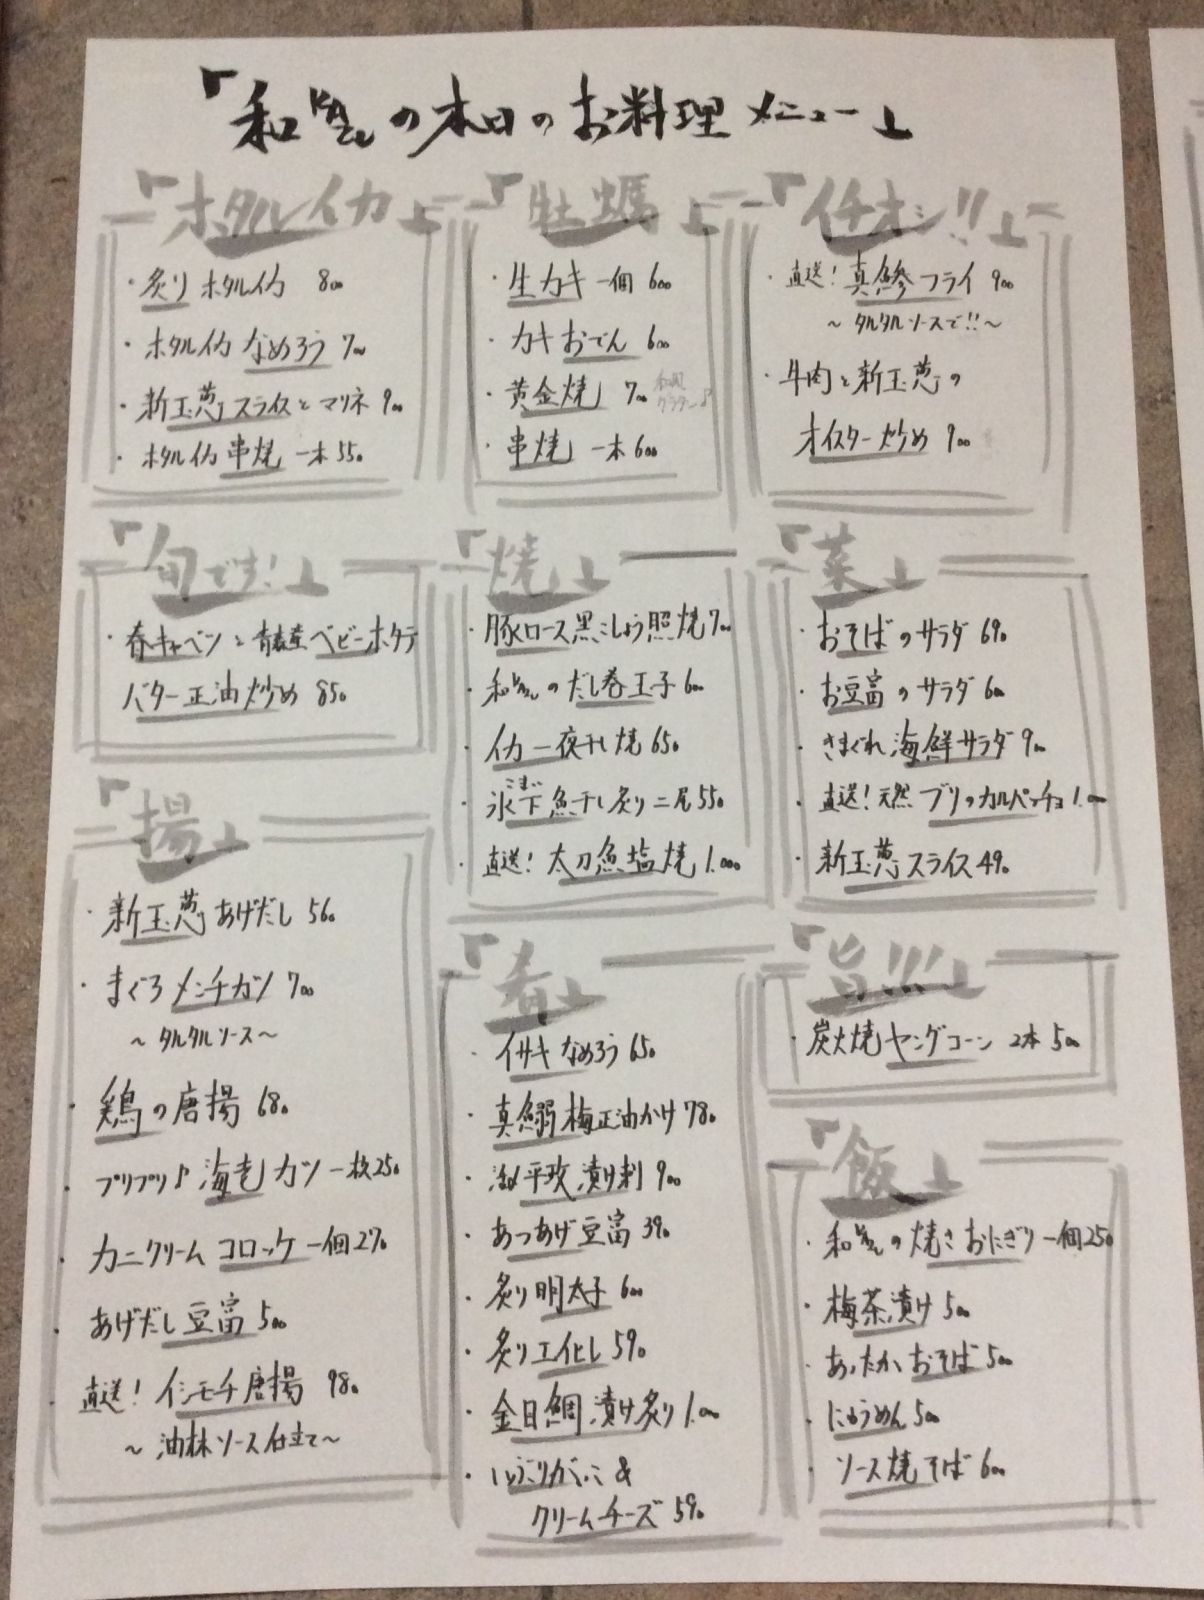 「和
の本日のお料理メニュー」
「ホタルイカ」
・炙りホタルイカ 800
・ホタルイカなめろう 700
・新玉葱スライスとマリネ 900
・ホタルイカ串焼 一本550
「牡蠣」
・生カキ一個 600
・カキおでん 600
・黄金焼 700 和風
グラタン
・串焼 一本600
「イチオシ!!」
・直送!真鯵フライ 900
～タルタルソースで!!～
・牛肉と新玉葱の
オイスター炒め 900
「旬です!」
・春キャベツと青森産ベビーホタテ
バター正油炒め 850
「焼」
・豚ロース黒こしょう照焼700
・和 のだし巻玉子600
・イカ一夜干し焼650
こまい
・氷下魚干し炙り二尾550
・直送!太刀魚塩焼1.000
「菜」
・おそばのサラダ 690
・お豆富のサラダ 600
・きまぐれ海鮮サラダ900
・直送!天然ブリのカルパッチョ1.000
・新玉葱スライス490
「揚」
・新玉葱あげだし 560
・まぐろメンチカツ 700
～タルタルソース～
・鶏の唐揚 680
・プリプリ♪海老カツ一枚250
・カニクリームコロッケ一個270
・あげだし豆富500
・直送!イシモチ唐揚 980
～油林ソース仕立て～
「肴」
・イサキなめろう650
・真鰯梅正油かけ780
・平政漬け刺900
・あつあげ豆富390
・炙り明太子600
・炙りエイヒレ590
・金目鯛漬け炙り1.000
・いぶりがっこ&
クリームチーズ590
「旨!!!」
・炭火焼ヤングコーン 2本500
「飯」
・和 の焼きおにぎり一個250
・梅茶漬け500
・あったかおそば500
・にゅうめん500
・ソース焼そば600